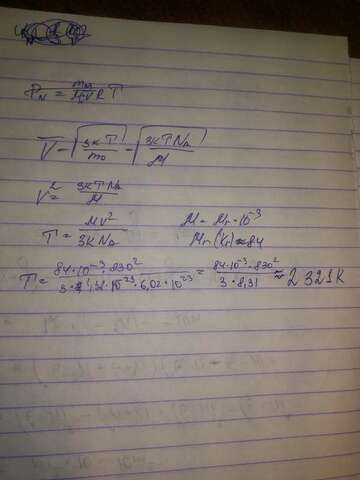 P_N = m_N / MV RT
V̄ = √(3kT / m₀) = √(3kTNₐ / M)
V² = 3kTNₐ / M
T = MV² / 3kNₐ    M = Mr · 10⁻³
Mr (Kr) = 84
T = 84·10⁻³·830² / 3·1,38·10⁻²³·6,02·10²³ = 84·10⁻³·830² / 3·8,31 ≈ 2321K